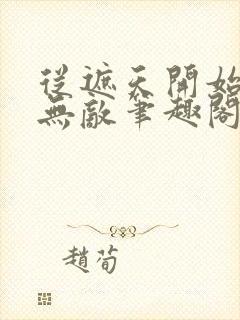 從遮天開始
無敵筆趣閣
趙荀